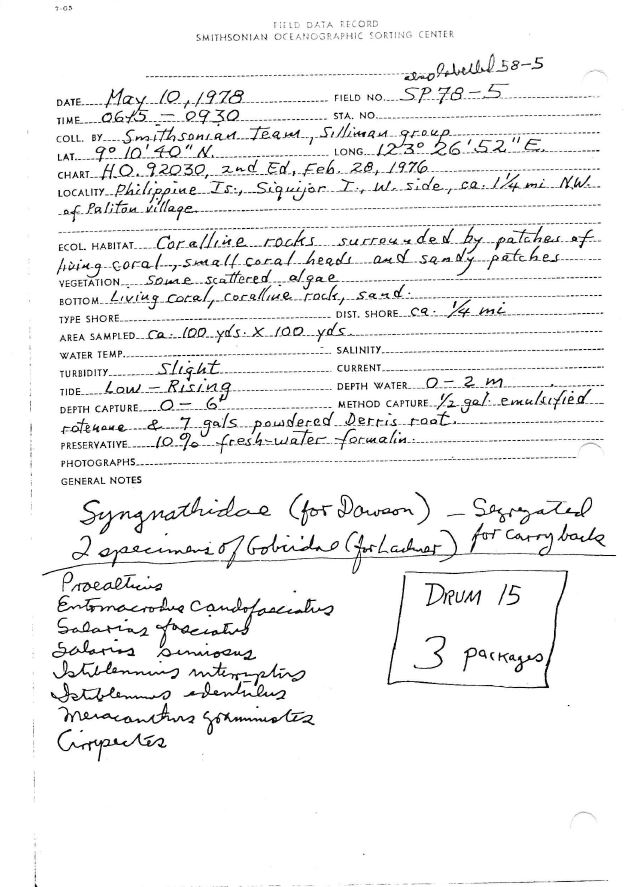 7-65
FIELD DATA RECORD
SMITHSONIAN OCEANOGRAPHIC SORTING CENTER
also labelled 58-5
DATE May 10, 1978 FIELD NO. SP 78-5
TIME 0645 - 0930 STA. NO.
COLL. BY Smithsonian Team, Silliman group
LAT. 9° 10' 40" N. LONG. 123° 26' 52" E.
CHART H.O. 92030, 2nd Ed, Feb. 28, 1976
LOCALITY Philippine Is., Siquijor I., W. side, ca. 1¼ mi N.W.
of Paliton village.
ECOL. HABITAT Coralline rocks surrounded by patches of
living coral, small coral heads and sandy patches
VEGETATION some scattered algae
BOTTOM Living coral, coralline rock, sand.
TYPE SHORE DIST. SHORE ca. ¼ mi
AREA SAMPLED ca. 100 yds. X 100 yds.
WATER TEMP. SALINITY
TURBIDITY Slight CURRENT
TIDE Low - Rising DEPTH WATER 0 - 2 m
DEPTH CAPTURE 0 - 6' METHOD CAPTURE ½ gal emulsified
rotenone & 7 gals powdered Derris root.
PRESERVATIVE 10% fresh-water formalin.
PHOTOGRAPHS
GENERAL NOTES
Syngnathidae (for Dawson) - Segregated
2 specimens of Gobiidae (for Lachner) for carry back
Proealticus
Entomacrodus caudofasciatus
Salarias fasciatus
Salarias
Istiblennius interruptus
Istiblennius edentulus
Meiacanthus grammistes
Cirripectes
DRUM 15
3 packages